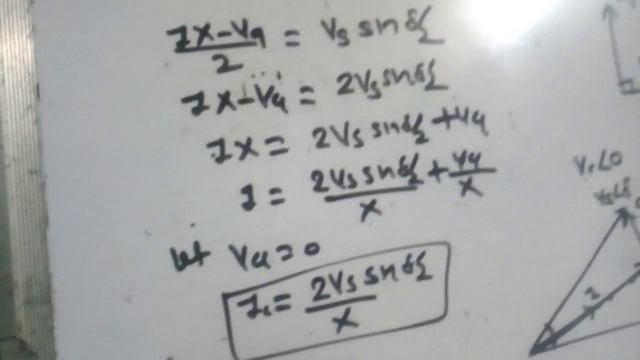 IX-Vq/2 = Vs sin δ/2
IX-Vq = 2Vs sin δ/2
IX = 2Vs sin δ/2 + Vq
I = 2Vs sin δ/2 / X + Vq/X
let Vq = 0
I0 = 2Vs sin δ/2 / X
Vr∠0
Vs∠δ
I